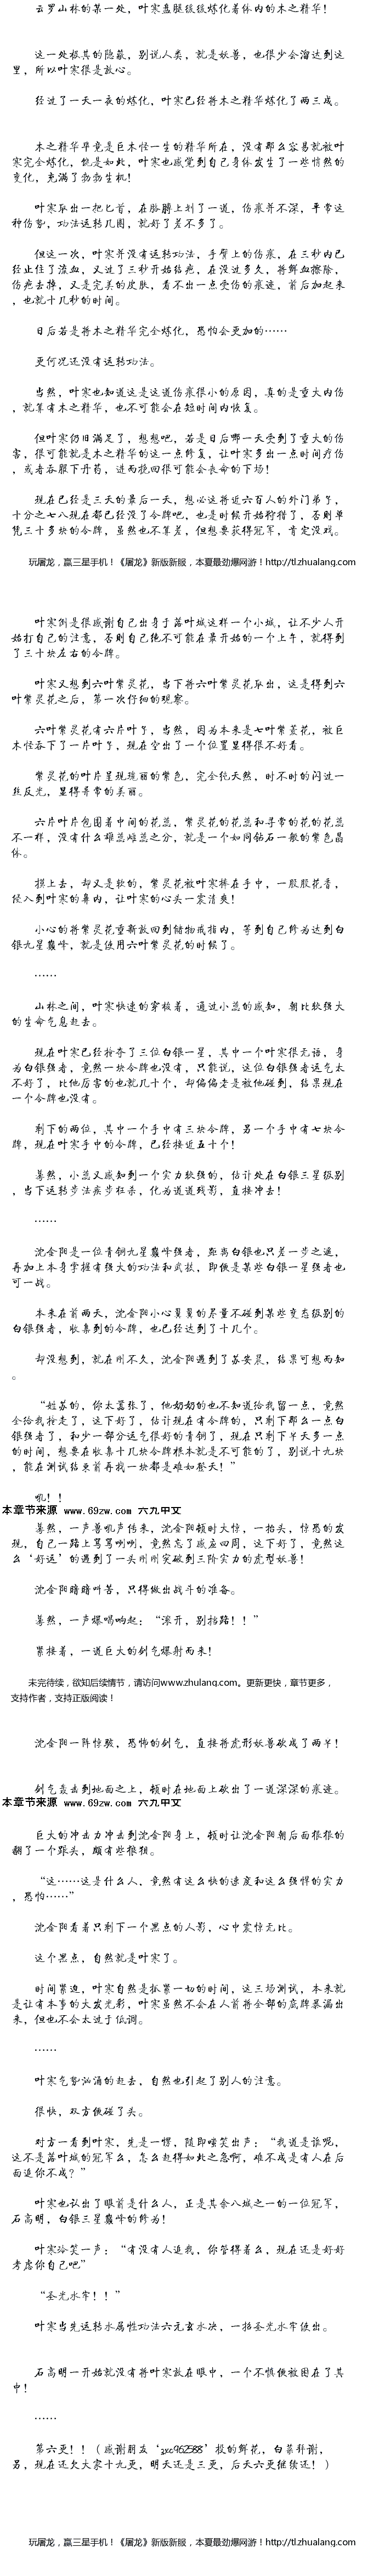 云罗山林的某一处，叶寒盘腿缓缓炼化着体内的木之精华！
这一处极其的隐蔽，别说人类，就是妖兽，也很少会溜达到这
里，所以叶寒很是放心。
经过了一天一夜的炼化，叶寒已经将木之精华炼化了两三成。
木之精华毕竟是巨木怪一生的精华所在，没有那么容易就被叶
寒完全炼化，饶是如此，叶寒也感觉到自己身体发生了一些悄然的
变化，充满了勃勃生机！
叶寒取出一把匕首，在胳膊上划了一道，伤痕并不深，平常这
种伤势，功法运转几圈，就好了差不多了。
但这一次，叶寒并没有运转功法，手臂上的伤痕，在三秒内已
经止住了流血，又过了三秒开始结疤，在没过多久，将鲜血擦除，
伤疤去掉，又是完美的皮肤，看不出一点受伤的痕迹，前后加起来
，也就十几秒的时间。
日后若是将木之精华完全炼化，恐怕会更加的……
更何况还没有运转功法。
当然，叶寒也知道这是这道伤痕很小的原因，真的是重大内伤
，就算有木之精华，也不可能会在短时间内恢复。
但叶寒仍旧满足了，想想吧，若是日后哪一天受到了重大的伤
害，很可能就是木之精华的这一点修复，让叶寒多出一点时间疗伤
，或者吞服下丹药，进而挽回很可能会丧命的下场！
现在已经是三天的最后一天，想必这将近六百人的外门弟子，
十分之七八现在都已经没了令牌吧，也是时候开始狩猎了，否则单
凭三十多块的令牌，虽然也不算差，但想要获得冠军，肯定没戏。
玩屠龙，赢三星手机！《屠龙》新版新服，本夏最劲爆网游！http://tl.zhualang.com
叶寒倒是很感谢自己出身于落叶城这样一个小城，让不少人开
始打自己的注意，否则自己绝不可能在最开始的一个上午，就得到
了三十块左右的令牌。
叶寒又想到六叶紫灵花，当下将六叶紫灵花取出，这是得到六
叶紫灵花之后，第一次仔细的观察。
六叶紫灵花有六片叶子，当然，因为本来是七叶紫萱花，被巨
木怪吞下了一片叶子，现在空出了一个位置显得很不好看。
紫灵花的叶片呈现瑰丽的紫色，完全纯天然，时不时的闪过一
丝反光，显得异常的美丽。
六片叶片包围着中间的花蕊，紫灵花的花蕊和寻常的花的花蕊
不一样，没有什么雄蕊雌蕊之分，就是一个如同钻石一般的紫色晶
体。
摸上去，却又是软的，紫灵花被叶寒捧在手中，一股股花香，
侵入到叶寒的鼻内，让叶寒的心头一震清爽！
小心的将紫灵花重新放回到储物戒指内，等到自己修为达到白
银九星巅峰，就是使用六叶紫灵花的时候了。
……
山林之间，叶寒快速的穿梭着，通过小蕊的感知，朝比较强大
的生命气息赶去。
现在叶寒已经抢夺了三位白银一星，其中一个叶寒很无语，身
为白银强者，竟然一块令牌也没有，只能说，这位白银强者运气太
不好了，比他厉害的也就几十个，却偏偏老是被他碰到，结果现在
一个令牌也没有。
剩下的两位，其中一个手中有三块令牌，另一个手中有七块令
牌，现在叶寒手中的令牌，已经接近五十个！
蓦然，小蕊又感知到一个实力较强的，估计处在白银三星级别
，当下运转步法疾步狂杀，化为道道残影，直接冲去！
……
沈金阳是一位青铜九星巅峰强者，距离白银也只差一步之遥，
再加上本身掌握有强大的功法和武技，即便是某些白银一星强者也
可一战。
本来在前两天，沈金阳小心翼翼的尽量不碰到某些变态级别的
白银强者，收集到的令牌，也已经达到了十几个。
却没想到，就在刚不久，沈金阳遇到了苏安晨，结果可想而知
。
“姓苏的，你太嚣张了，他奶奶的也不知道给我留一点，竟然
全给我抢走了，这下好了，估计现在有令牌的，只剩下那么一点白
银强者了，和少一部分运气很好的青铜了，现在只剩下半天多一点
的时间，想要在收集十几块令牌根本就是不可能的了，别说十九块
，能在测试结束前再找一块都是难如登天！”
吼！！
本章节来源 www.69zw.com 六九中文
蓦然，一声兽吼声传来，沈金阳顿时大惊，一抬头，惊恐的发
现，自己一路上骂骂咧咧，竟然忘了感应四周，这下好了，竟然这
么‘好运’的遇到了一头刚刚突破到三阶实力的虎型妖兽！
沈金阳暗暗叫苦，只得做出战斗的准备。
蓦然，一声爆喝响起：“滚开，别挡路！！”
紧接着，一道巨大的剑气爆射而来！
未完待续，欲知后续情节，请访问www.zhulang.com。更新更快，章节更多，
支持作者，支持正版阅读！
沈金阳一阵惊骇，恐怖的剑气，直接将虎形妖兽砍成了两半！
剑气轰击到地面之上，顿时在地面上砍出了一道深深的痕迹。
本章节来源 www.69zw.com 六九中文
巨大的冲击力冲击到沈金阳身上，顿时让沈金阳朝后面狠狠的
翻了一个跟头，颇有些狼狈。
“这……这是什么人，竟然有这么快的速度和这么强悍的实力
，恐怖……”
沈金阳看着只剩下一个黑点的人影，心中震惊无比。
这个黑点，自然就是叶寒了。
时间紧迫，叶寒自然是抓紧一切的时间，这三场测试，本来就
是让有本事的大发光彩，叶寒虽然不会在人前将全部的底牌暴漏出
来，但也不会太过于低调。
……
叶寒气势汹涌的赶去，自然也引起了别人的注意。
很快，双方便碰了头。
对方一看到叶寒，先是一愣，随即嗤笑出声：“我道是谁呢，
这不是落叶城的冠军么，怎么赶得如此之急啊，难不成是有人在后
面追你不成？”
叶寒也认出了眼前是什么人，正是其余八城之一的一位冠军，
石高明，白银三星巅峰的修为！
叶寒冷笑一声：“有没有人追我，你管得着么，现在还是好好
考虑你自己吧”
“圣光水牢！！”
叶寒当先运转水属性功法六元玄水决，一招圣光水牢使出。
石高明一开始就没有将叶寒放在眼中，一个不惧便被困在了其
中！
……
第六更！！（感谢朋友‘zxc962588’投的鲜花，白菜拜谢，
另，现在还欠大家十九更，明天还是三更，后天六更继续还！）
玩屠龙，赢三星手机！《屠龙》新版新服，本夏最劲爆网游！http://tl.zhualang.com